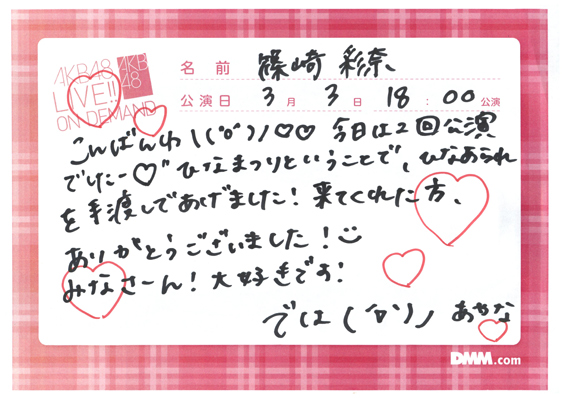 AKB48
LIVE!!
ON DEMAND
AKB
48
名前 篠崎 彩奈
公演日 3月 3日 18:00公演
こんばんわ\(°o°)ノ♡♡ 今日は2回公演
でしたー♡ ひなまつりということで、ひなあられ
を手渡しであげました!来てくれた方、
ありがとうございました!
みなさーん!大好きです!
では( ˊᗜˋ)ノ あやな
DMM.com